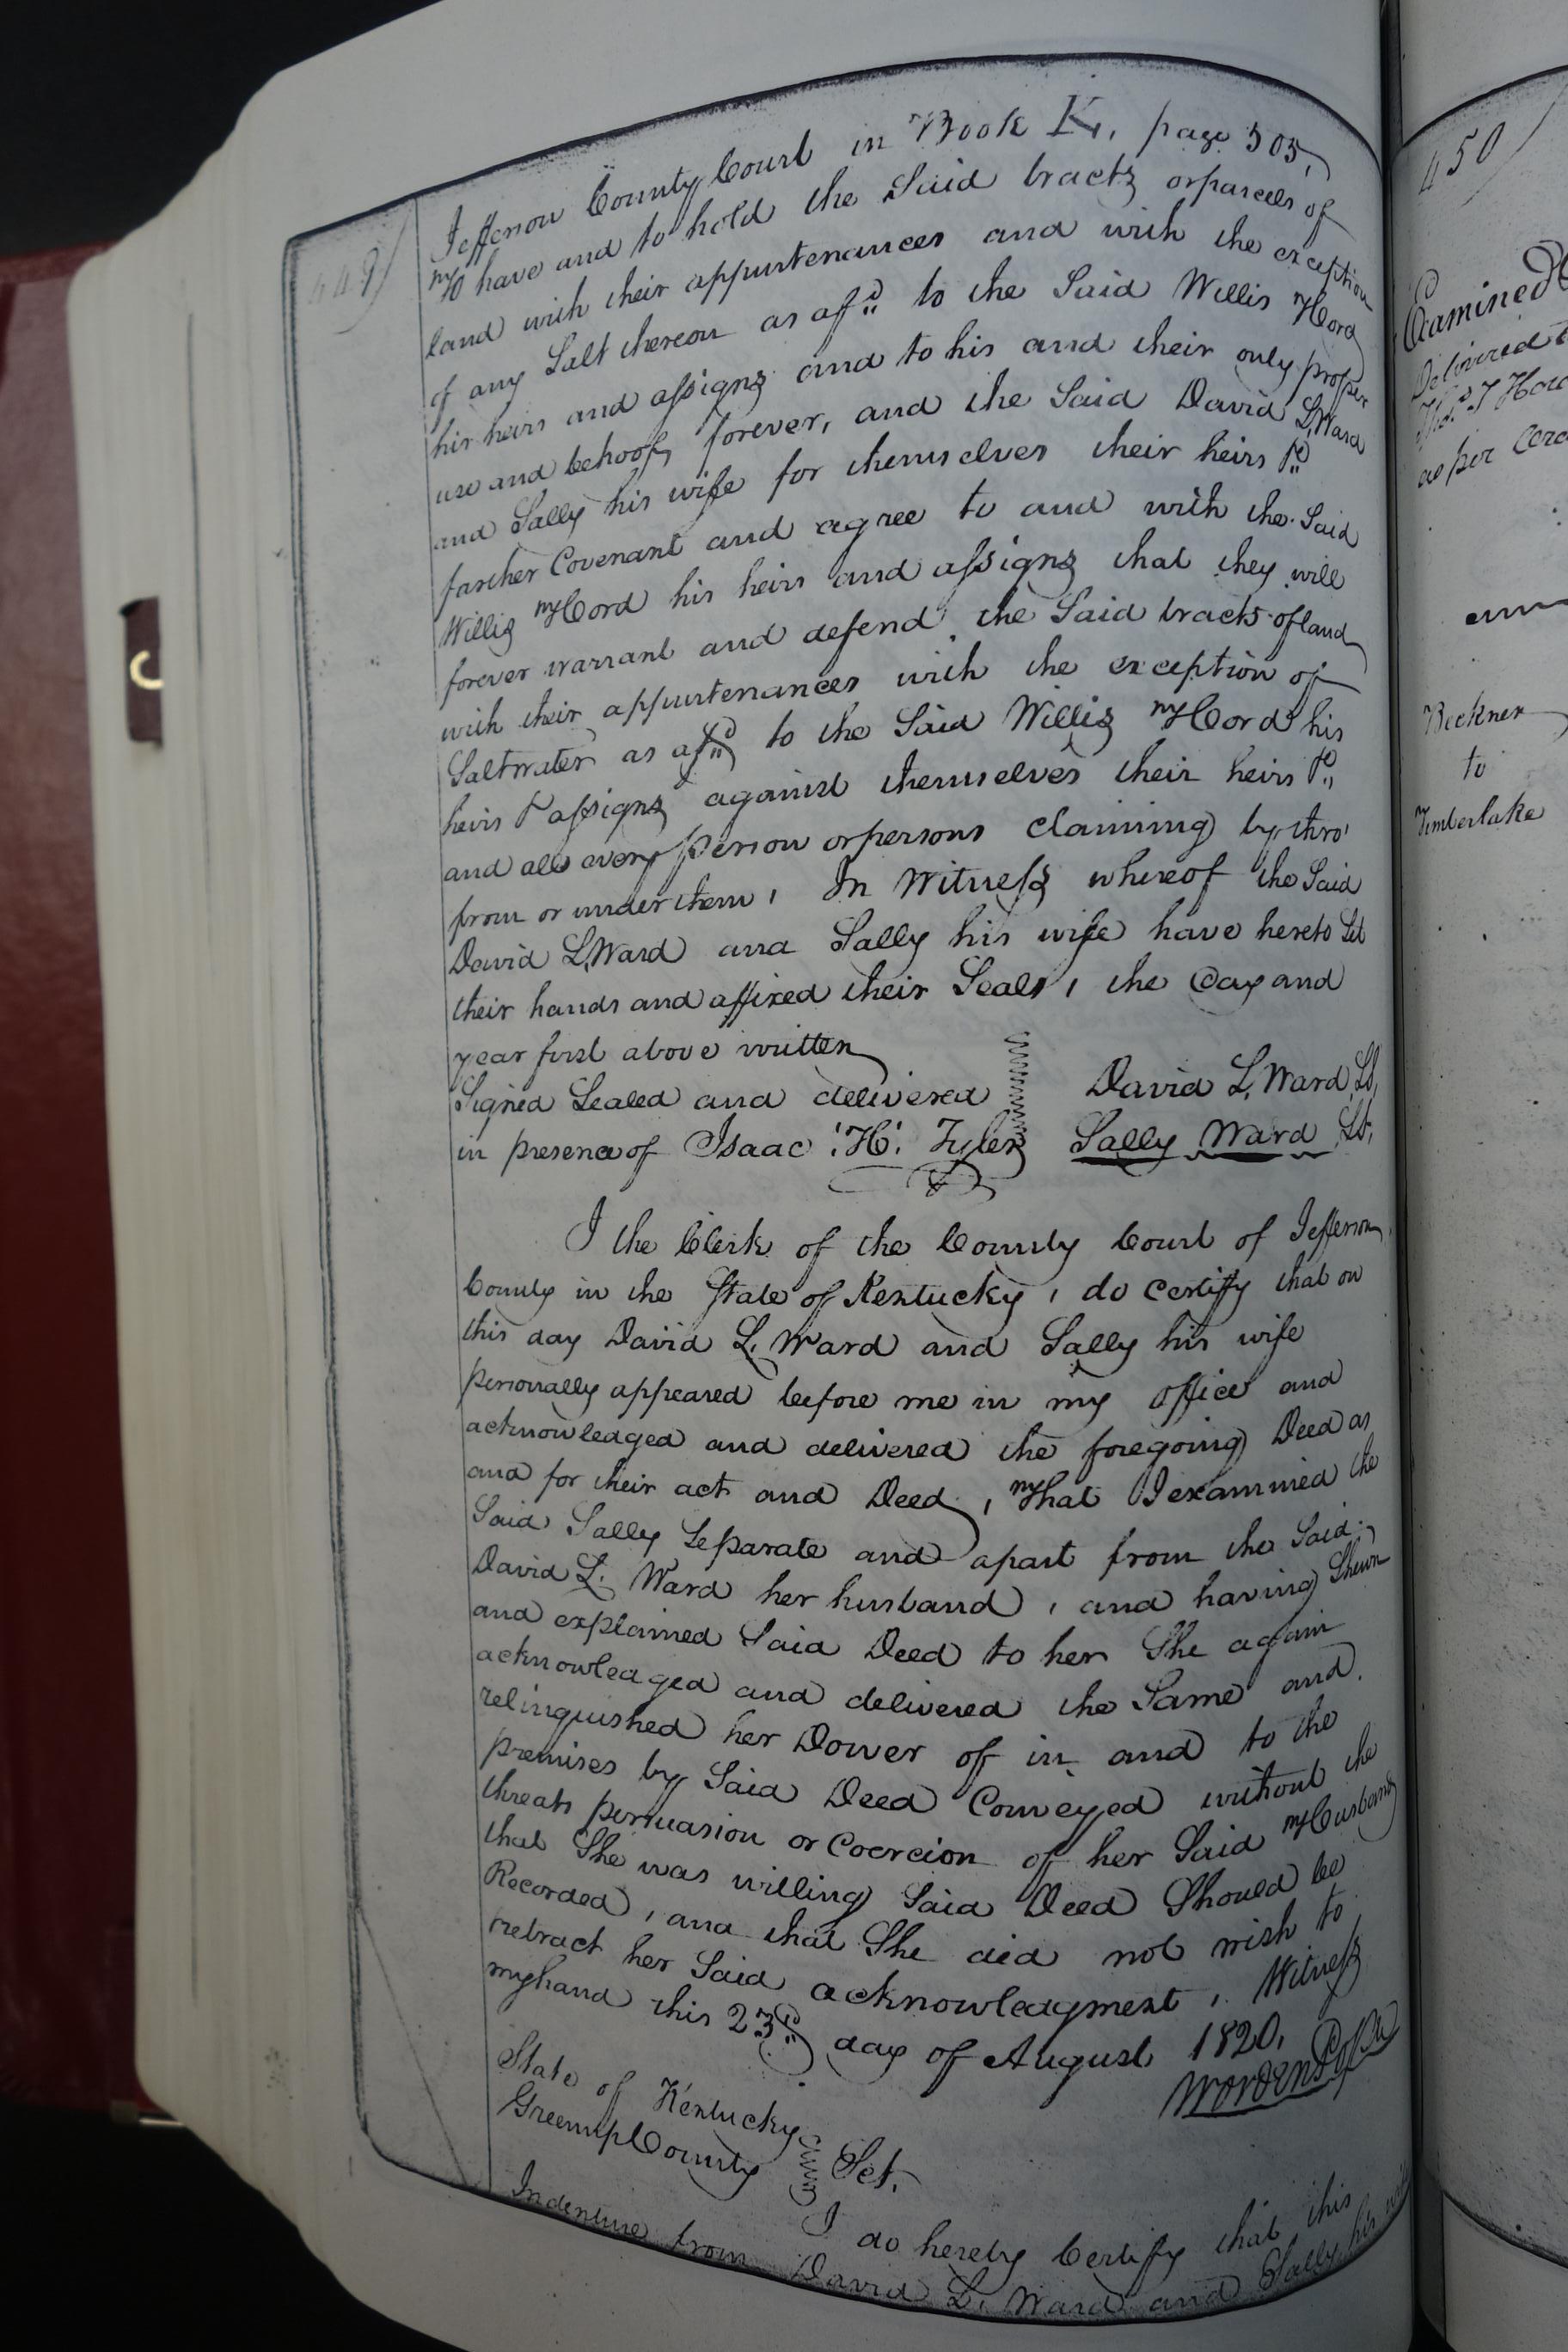 449
Jefferson County Court in Book K, page 505,
To have and to hold the Said tracts or parcels of
land with their appurtenances and with the exception
of any Salt thereon as afd to the Said Willis Hord
his heirs and assigns and to his and their only proper
use and behoof, forever, and the Said David L, Ward
and Sally his wife for themselves their heirs &c
farther Covenant and agree to and with the Said
Willis Hord his heirs and assigns that they will
forever warrant and defend the Said tracts of land
with their appurtenances with the exception of
Saltwater as afd to the Said Willis Hord his
heirs & assigns against themselves their heirs &c,
and all every person or persons claiming by thro'
from or under them, In Witness whereof the Said
David L, Ward and Sally his wife have hereto Set
their hands and affixed their Seals, the Day and
year first above written
Signed Sealed and delivered David L, Ward, LS,
in presence of Isaac H. Tyler Sally Ward LS,
I the Clerk of the County Court of Jefferson
County in the State of Kentucky, do certify that on
this day David L, Ward and Sally his wife
personally appeared before me in my office and
acknowledged and delivered the foregoing Deed as
and for their act and Deed, That I examined the
Said Sally Separate and apart from the Said
David L. Ward her husband, and having Shewn
and explained Said Deed to her She again
acknowledged and delivered the Same and
relinquished her Dower of in and to the
premises by Said Deed Conveyed without the
threats persuasion or Coercion of her Said Husband
that She was willing Said Deed Should be
Recorded, and that She did not wish to
retract her Said acknowledgment, Witness
my hand this 23d day of August 1820,
State of Kentucky
Greenup County Sct,
I do hereby Certify that this
Indenture from David L, Ward and Sally his wife
450
Examined
Delivered
Hord
as per
Beckner
to
Timberlake